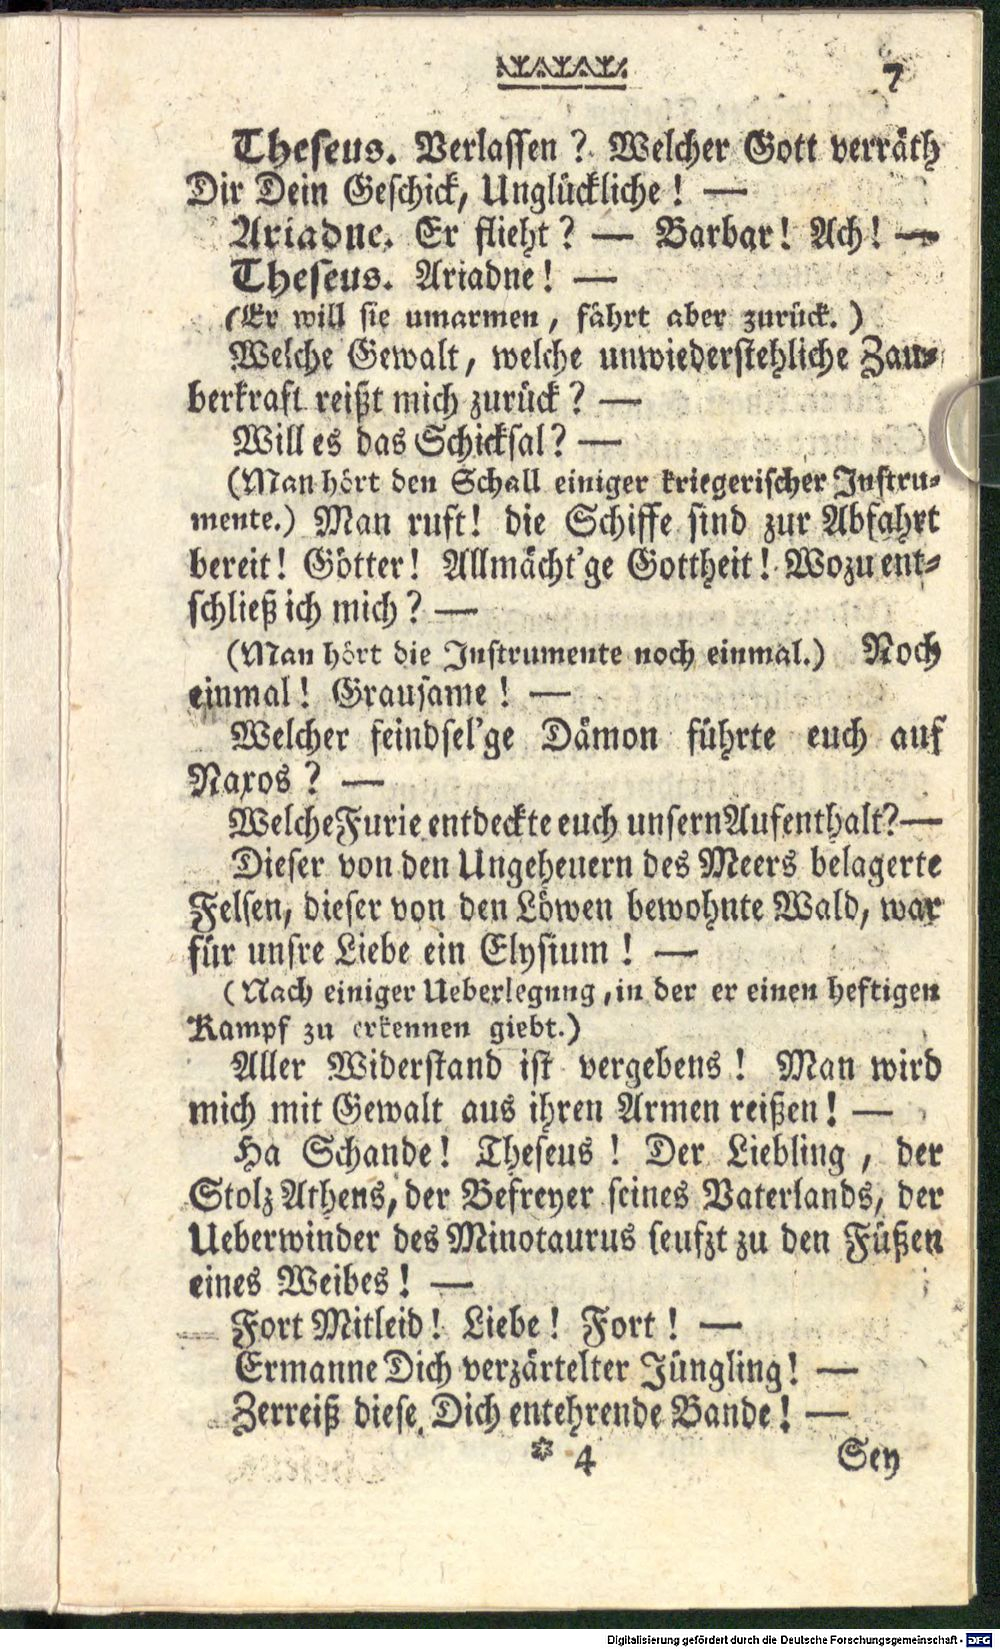 7
Theseus. Verlassen? Welcher Gott verräth
Dir Dein Geschick, Unglückliche! —
Ariadne. Er flieht? — Barbar! Ach! —
Theseus. Ariadne! —
(Er will sie umarmen, fährt aber zurück.)
Welche Gewalt, welche unwiederstehliche Zau-
berkraft reißt mich zurück? —
Will es das Schicksal? —
(Man hört den Schall einiger kriegerischer Instru-
mente.) Man ruft! die Schiffe sind zur Abfahrt
bereit! Götter! Allmächt'ge Gottheit! Wozu ent-
schließ ich mich? —
(Man hört die Instrumente noch einmal.) Noch
einmal! Grausame! —
Welcher feindsel'ge Dämon führte euch auf
Naxos? —
Welche Furie entdeckte euch unsern Aufenthalt? —
Dieser von den Ungeheuern des Meers belagerte
Felsen, dieser von den Löwen bewohnte Wald, war
für unsre Liebe ein Elysium! —
(Nach einiger Ueberlegung, in der er einen heftigen
Kampf zu erkennen giebt.)
Aller Widerstand ist vergebens! Man wird
mich mit Gewalt aus ihren Armen reißen! —
Ha Schande! Theseus! Der Liebling, der
Stolz Athens, der Befreyer seines Vaterlands, der
Ueberwinder des Minotaurus seufzt zu den Füßen
eines Weibes! —
Fort Mitleid! Liebe! Fort! —
Ermanne Dich verzärtelter Jüngling! —
Zerreiß diese Dich entehrende Bande! —
* 4 Sey
Digitalisierung gefördert durch die Deutsche Forschungsgemeinschaft - DFG